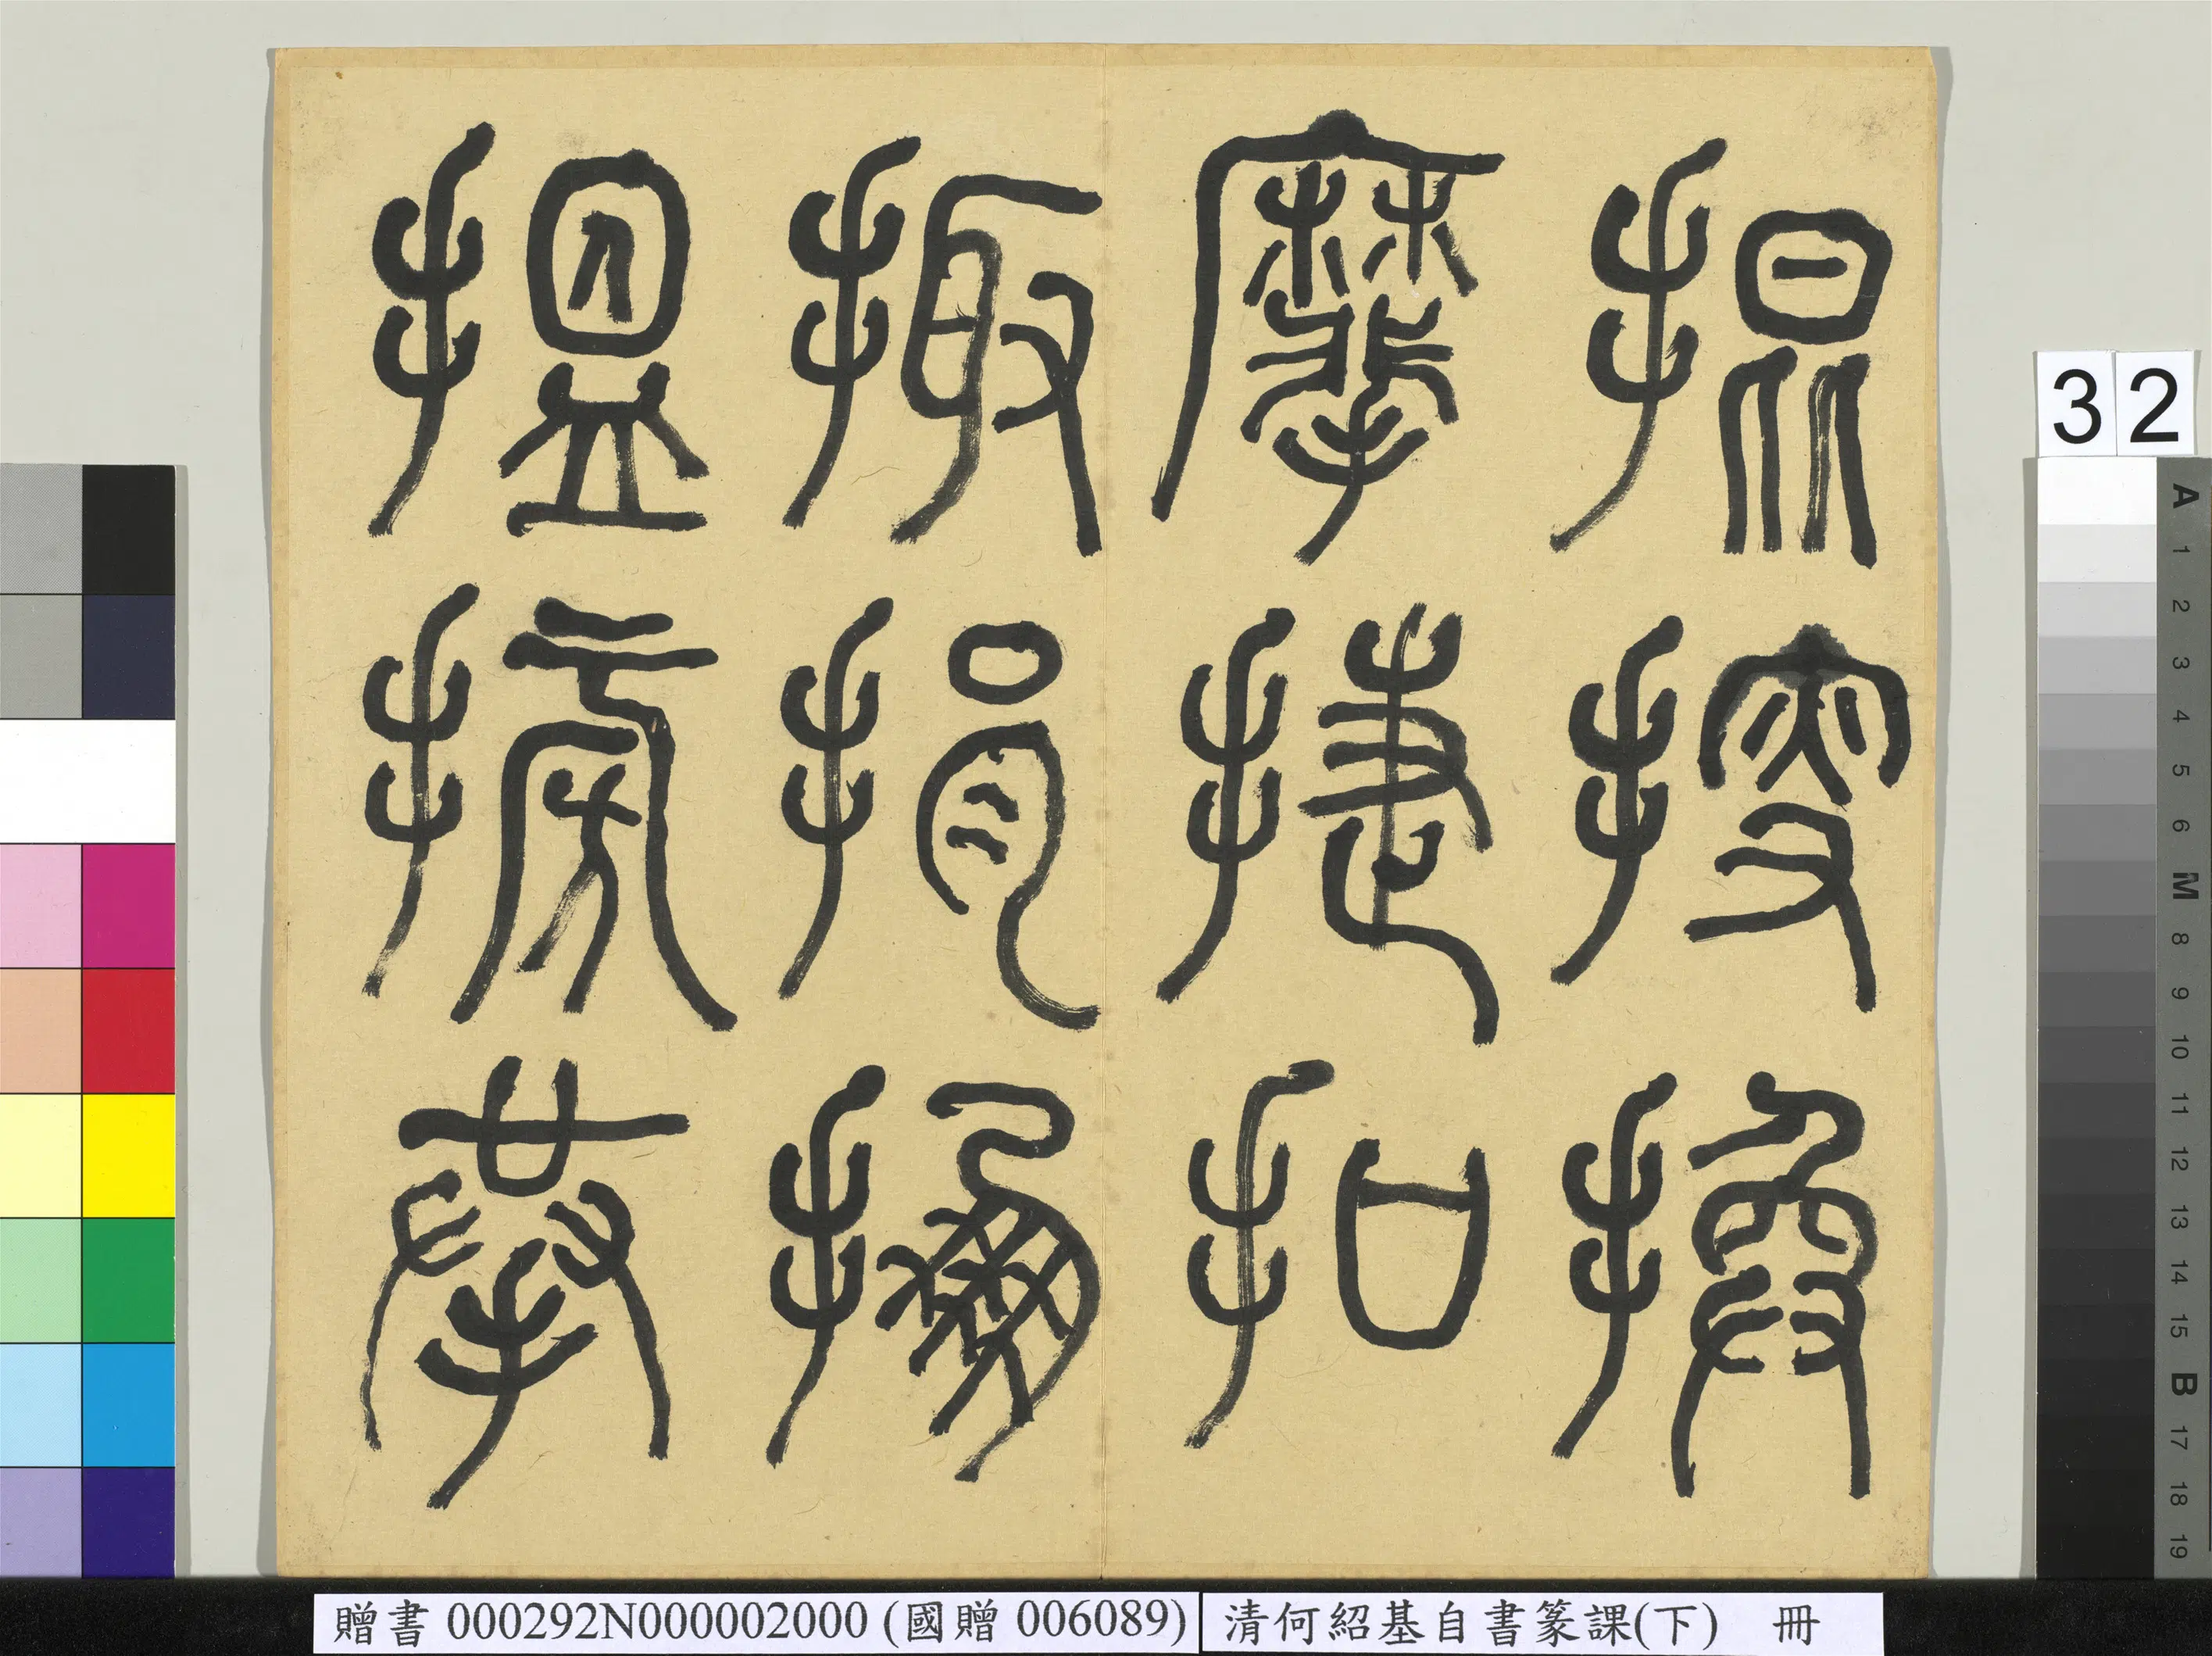 掍搜換
攠捷扣
掫捐掤
搵搒拲
32
A 1 2 3 4 5 6 M 8 9 10 11 12 13 14 15 B 17 18 19
贈書 000292N000002000 (國贈 006089)
清何紹基自書篆課(下) 冊